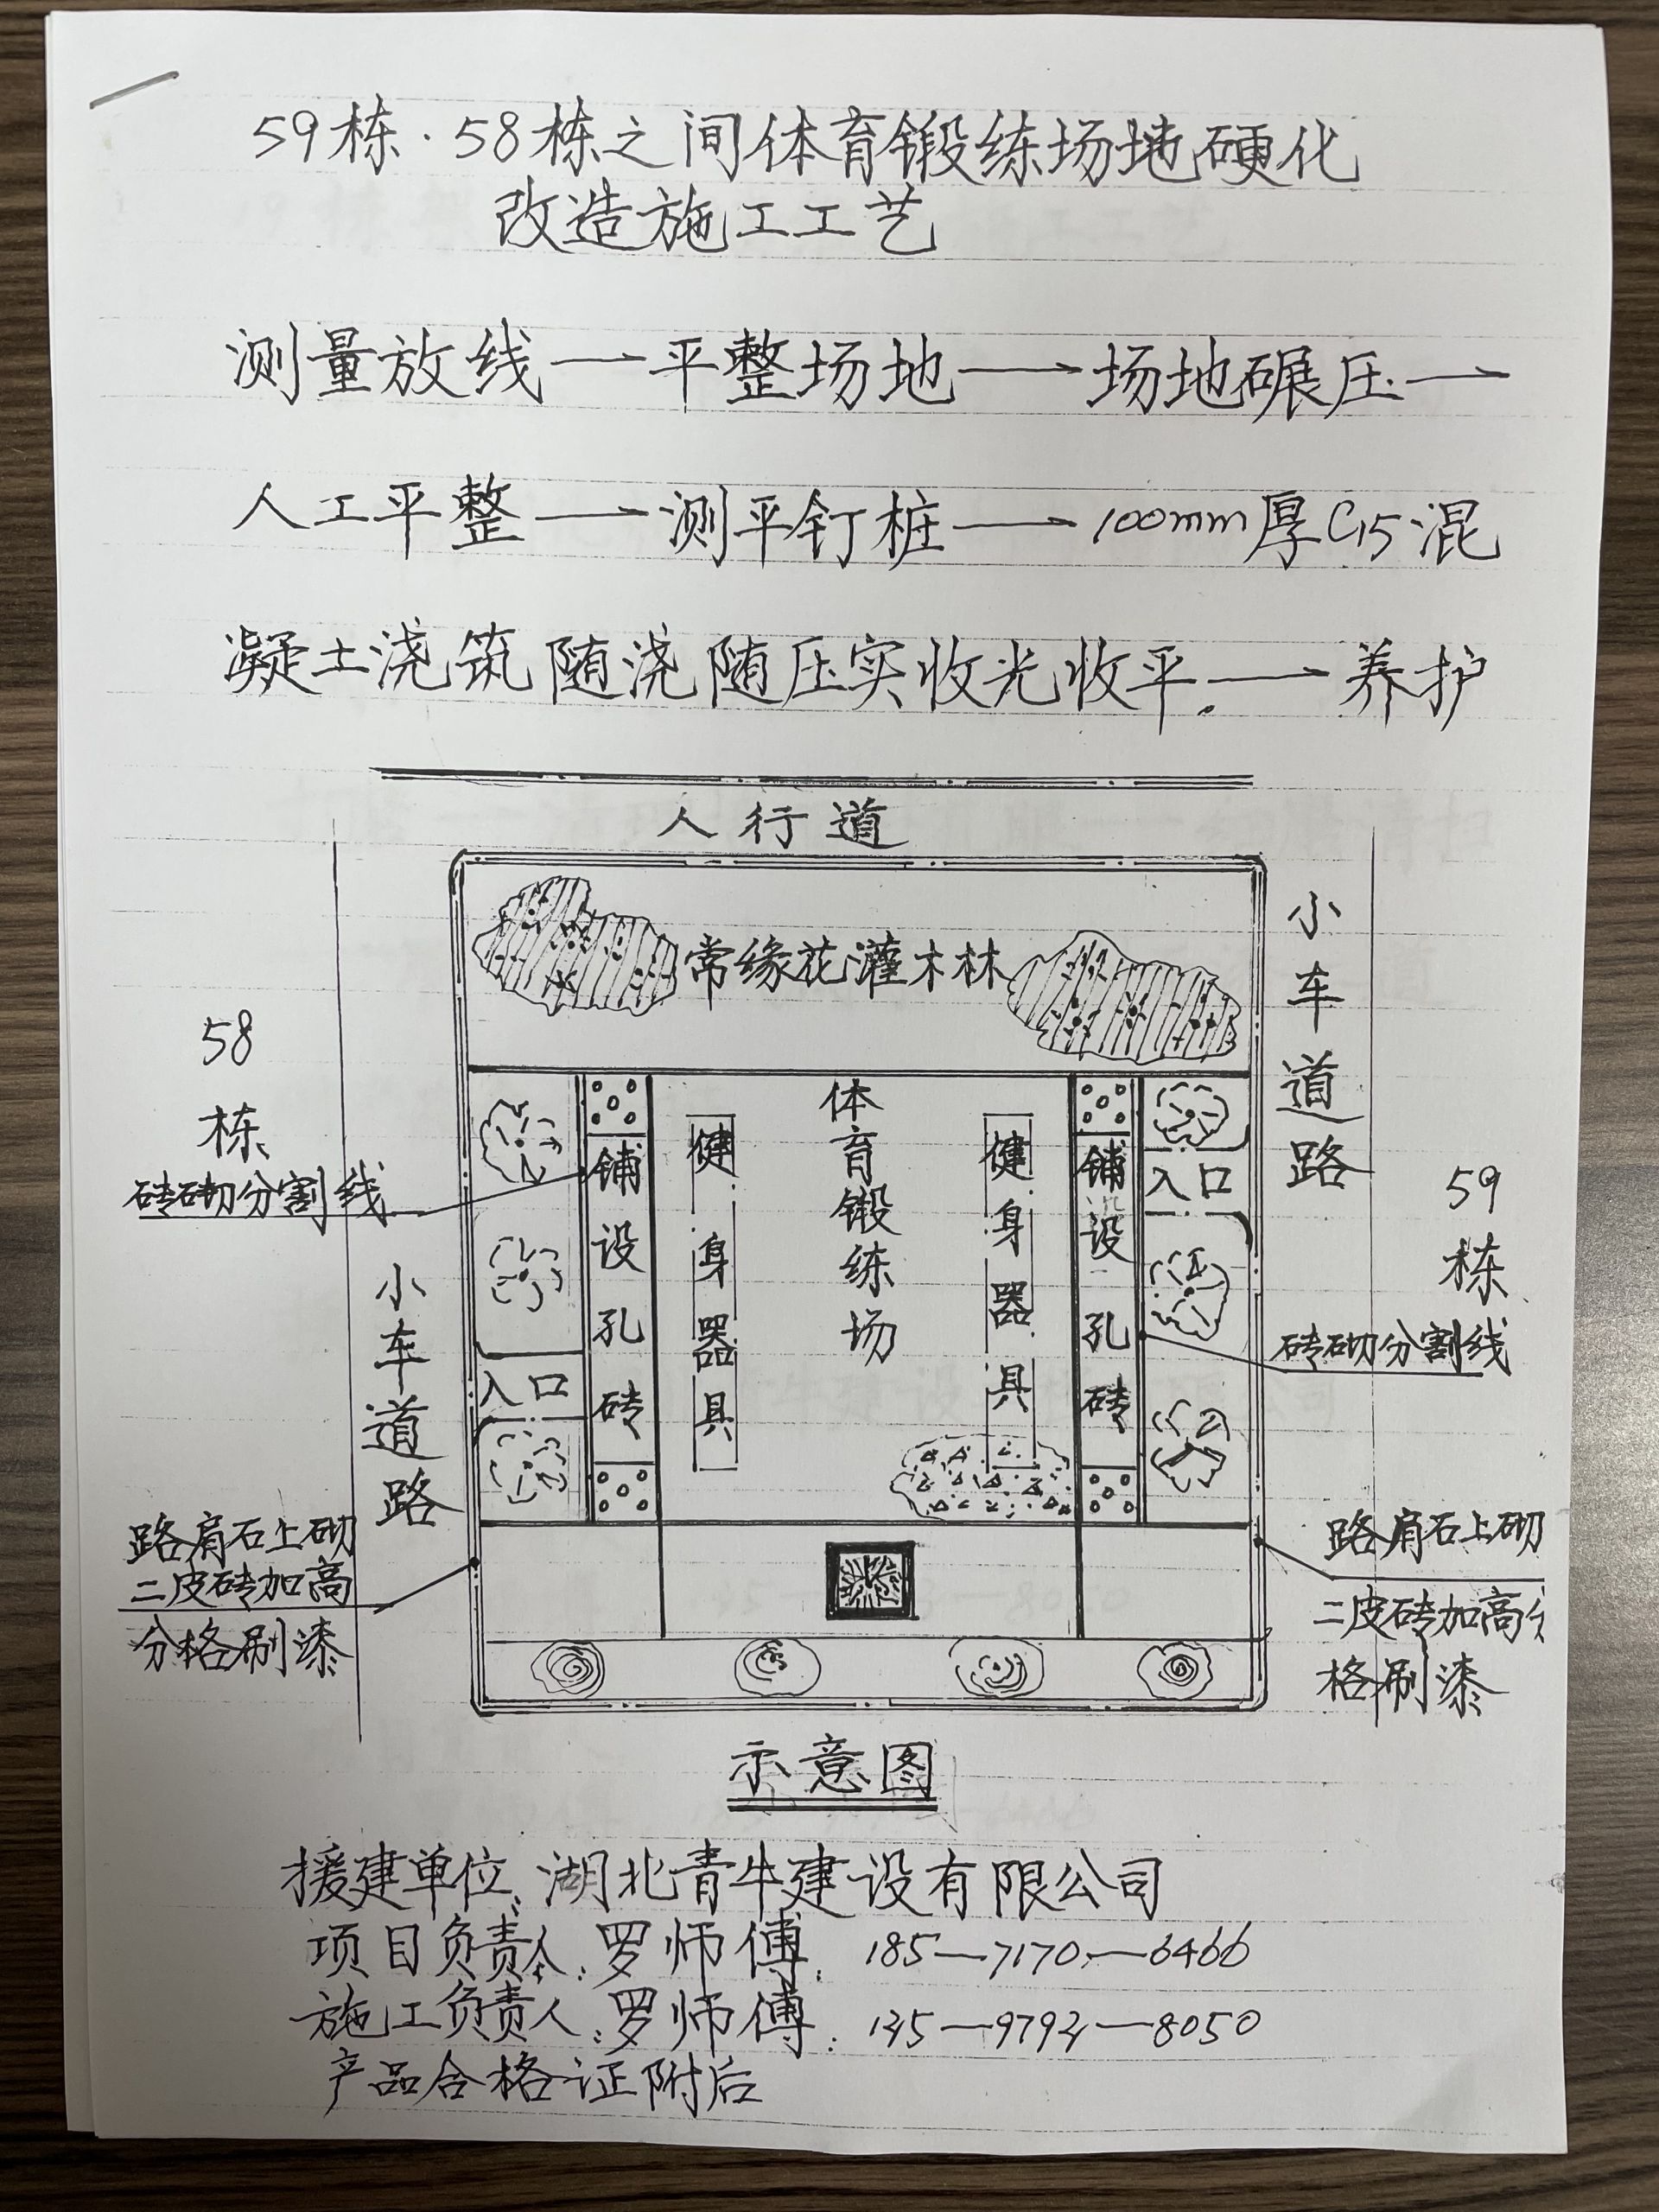 59栋·58栋之间体育锻练场地硬化
改造施工工艺
测量放线→平整场地→场地碾压→
人工平整→测平钉桩→100mm厚C15混
凝土浇筑随浇随压实收光收平.→养护
人行道
常缘花灌木林
小车道路
58栋
砖砌分割线
小车道路
铺设孔砖
健身器具
体育锻练场
健身器具
铺设孔砖
入口
59栋
砖砌分割线
入口
路肩石上砌
二皮砖加高
分格刷漆
路肩石上砌
二皮砖加高分
格刷漆
示意图
援建单位:湖北青牛建设有限公司
项目负责人:罗师傅:185—7170—6466
施工负责人:罗师傅:
产品合格证附后